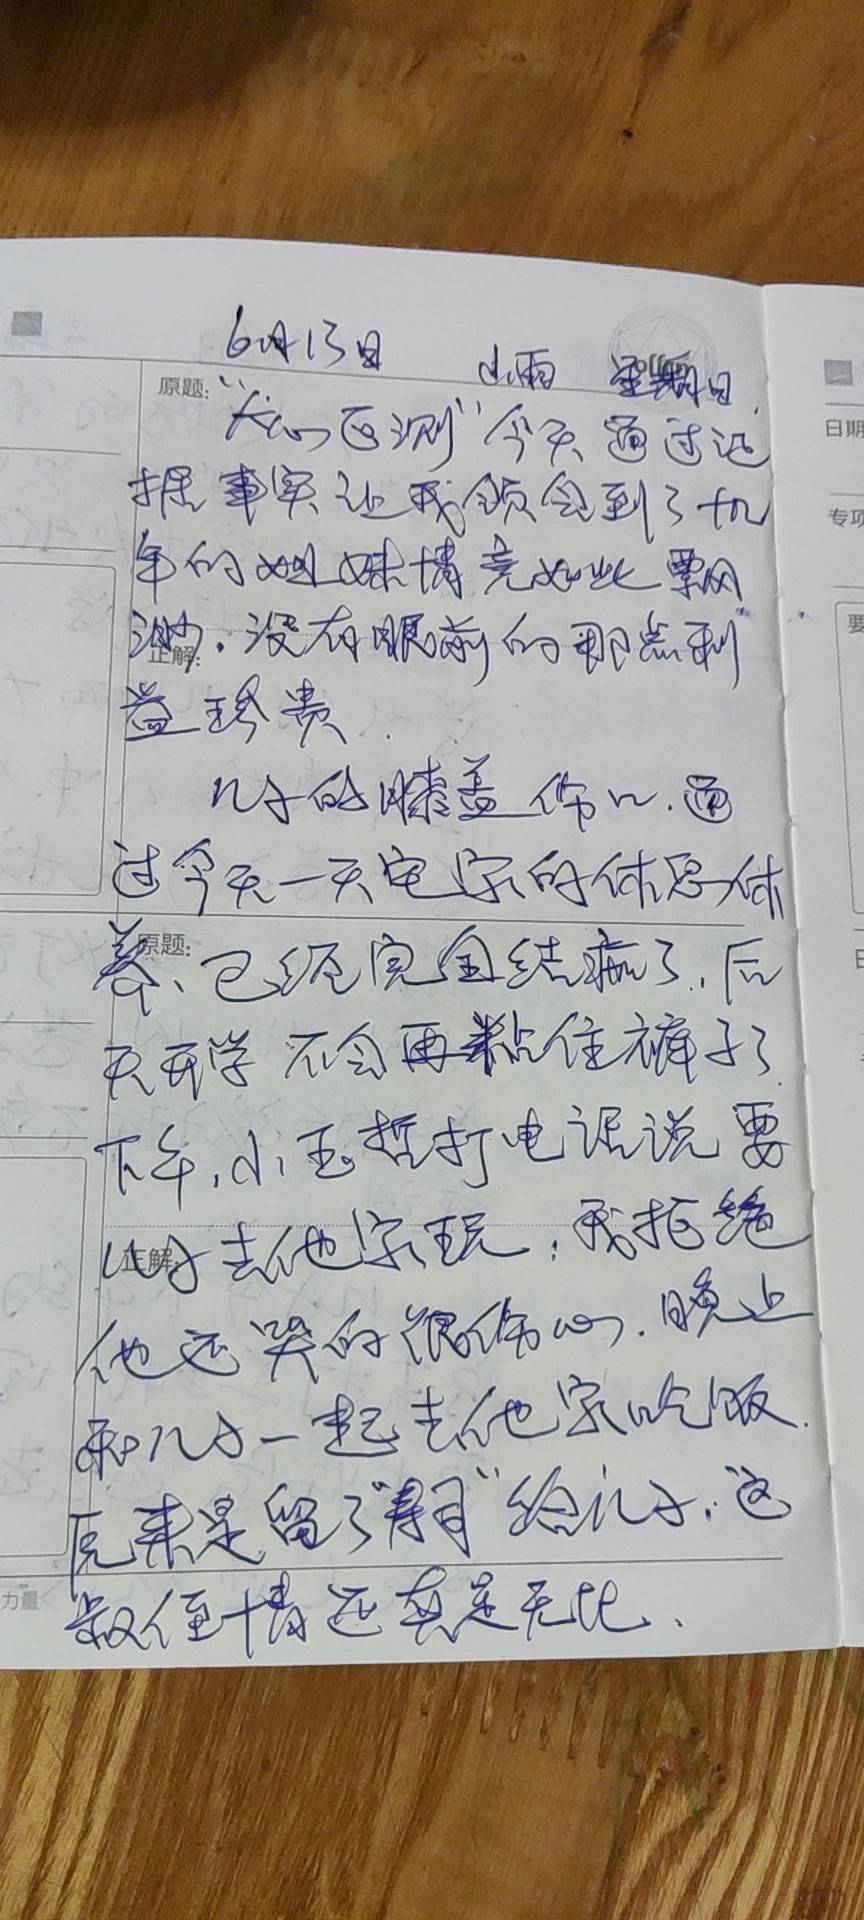 6月13日 小雨 星期日
原题:
"人心叵测"今天通过证
据事实让我领会到了十几
年的姐妹情竟如此飘
渺.没有眼前的那点利
正解:
益珍贵.
儿子的膝盖伤口.通
过今天一天在家的休息休
养、已经完全结痂了,后
原题:
天开学不会再粘住裤子了
下午,小玉哲打电话说要
儿子去他家玩,我拒绝
正解:
他还哭的很伤心.晚上
和儿子一起去他家吃饭.
原来是留了"寿司"给儿子,这
叔侄情还真是无比、
力量
日期
专项
要